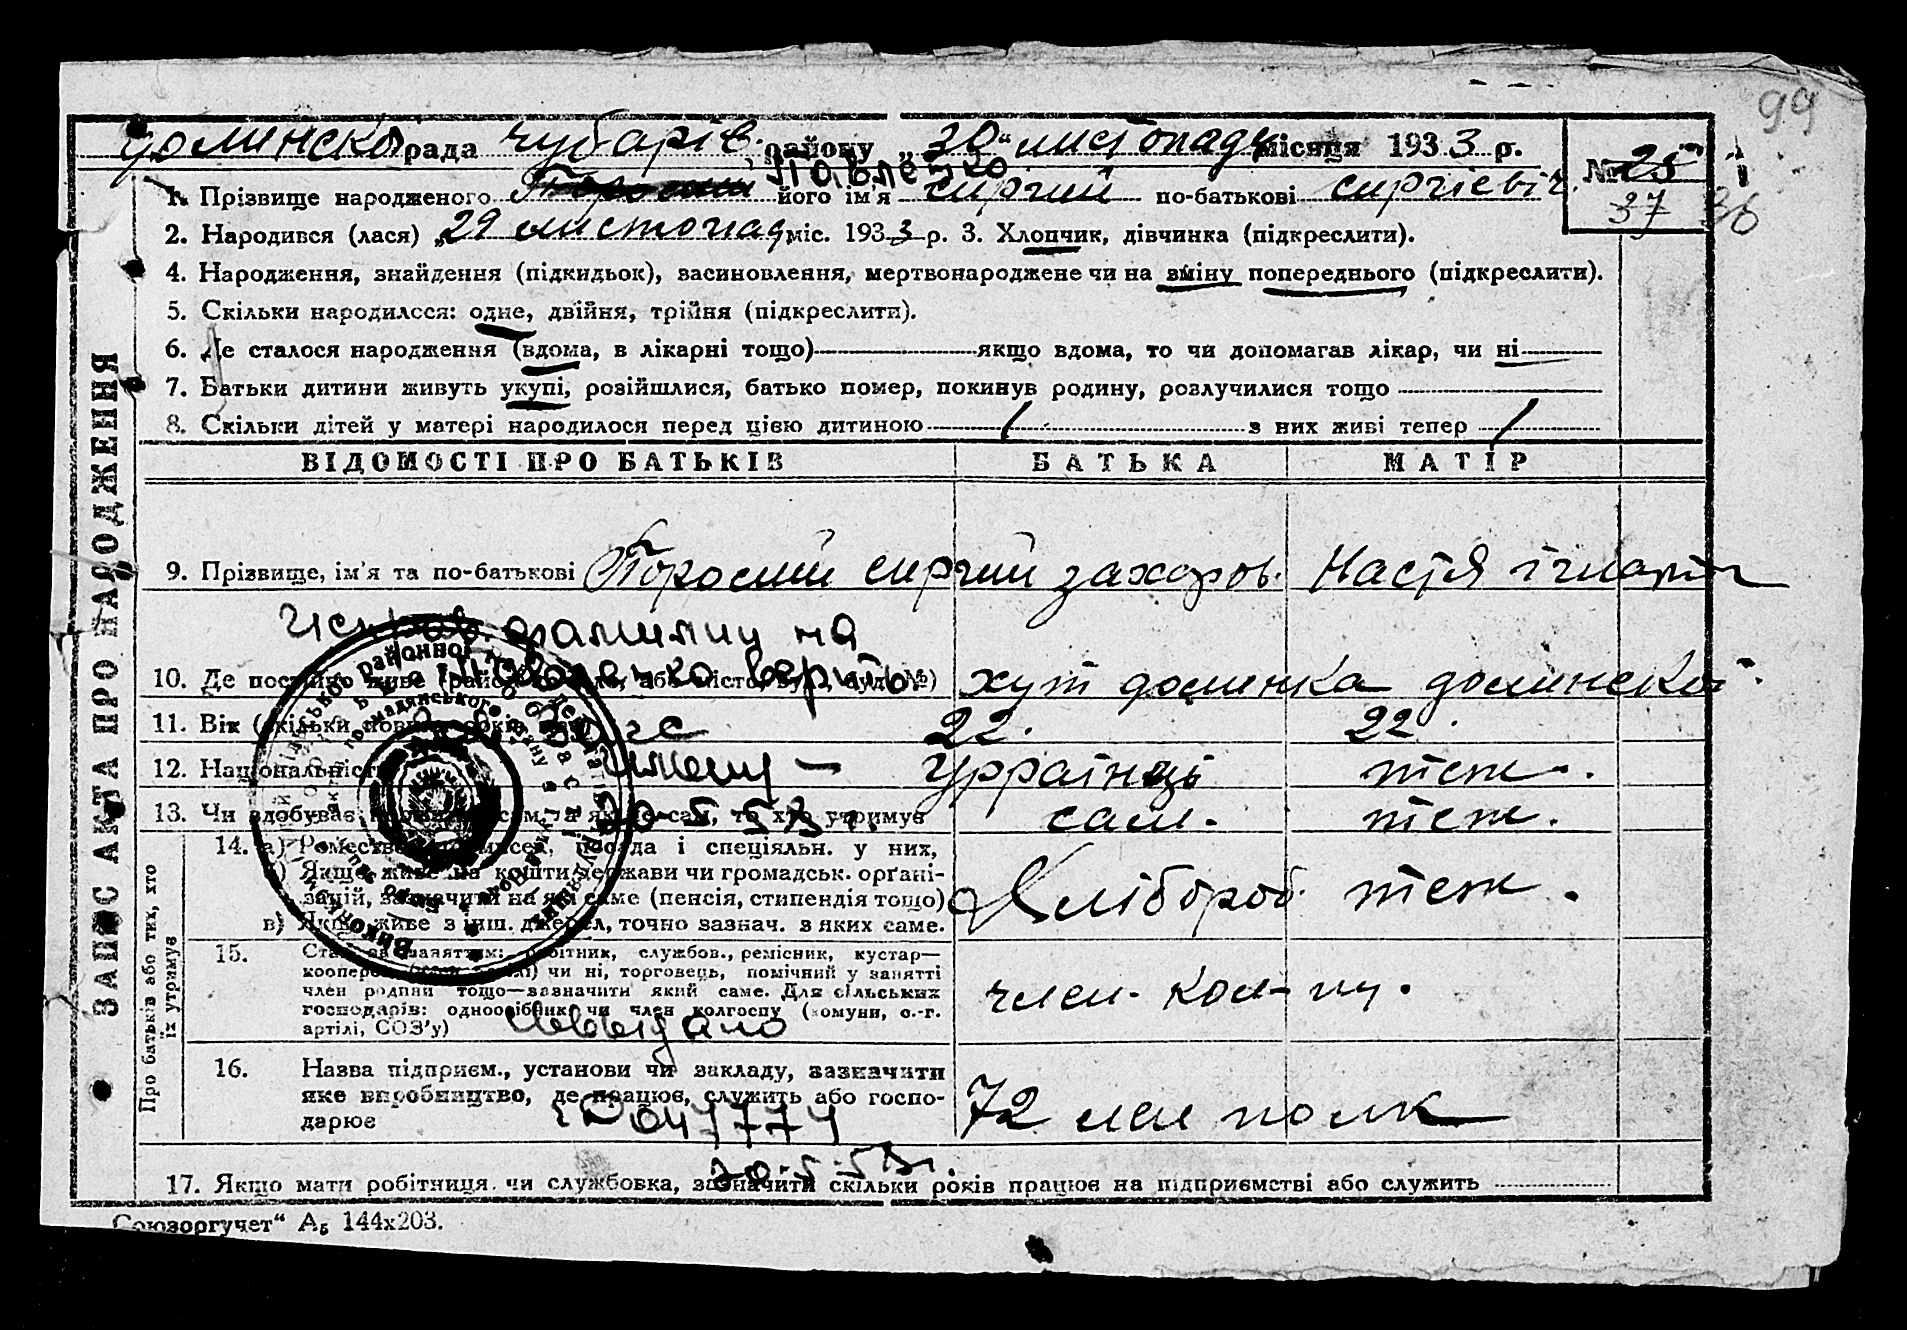 99
долинська рада Чубарів. району „30“ листопада місяця 1933 р.
№ 25
37 36
Павленко
1. Прізвище народженого його ім'я сиргий по-батькові сиргієвіч.
2. Народився (лася) „29 листопад міс. 1933 р. 3. Хлопчик, дівчинка (підкреслити).
4. Народження, знайдення (підкидьок), васиновлення, мертвонароджене чи на зміну попереднього (підкреслити).
5. Скільки народилося: одне, двійня, трійня (підкреслити).
6. Де сталося народження (вдома, в лікарні тощо) якщо вдома, то чи допомагав лікар, чи ні
7. Батьки дитини живуть укупі, розійшлися, батько помер, покинув родину, розлучилися тощо
8. Скільки дітей у матері народилося перед цією дитиною 1 з них живі тепер 1
ЗАПИС АКТА ПРО НАРОДЖЕННЯ
ВІДОМОСТІ ПРО БАТЬКІВ БАТЬКА МАТІР
9. Прізвище, ім'я та по-батькові сиргий захоров. Настя
фамилиу на
10. Де постійно живе Павленко верить хут долинка долинской
11. Вік 22. 22.
12. Національність теж.
13. Чи здобуває сам, а як не сам, то хто утримує сам. теж.
20-5 53 г.
Про батьків або тих, хто їх утримує
14. а) Ремество, посада і спеціяльн. у них,
Якщо живе на кошти держави чи громадськ. орґані-
зацій, зазначити на які саме (пенсія, стипендія тощо)
в) Якщо живе з інш. джерел, точно зазнач. з яких саме.
Хлібороб. теж.
15. робітник, службов., ремісник, кустар—
чи ні, торговець, помічний у занятті
член родини тощо—зазначити який саме. Для сільських
господарів: одноосібник чи член колгоспу (комуни, с.-г.
артілі, СОЗ'у)
член. кол-пу.
16. Назва підприєм., установи чи закладу, зазначити
яке виробництво, де працює, служить або госпо-
дарює
72 полк
047774
20-5-53г.
17. Якщо мати робітниця чи службовка, зазначити скільки років працює на підприємстві або служить
Союзоргучет“ А₅ 144х203.